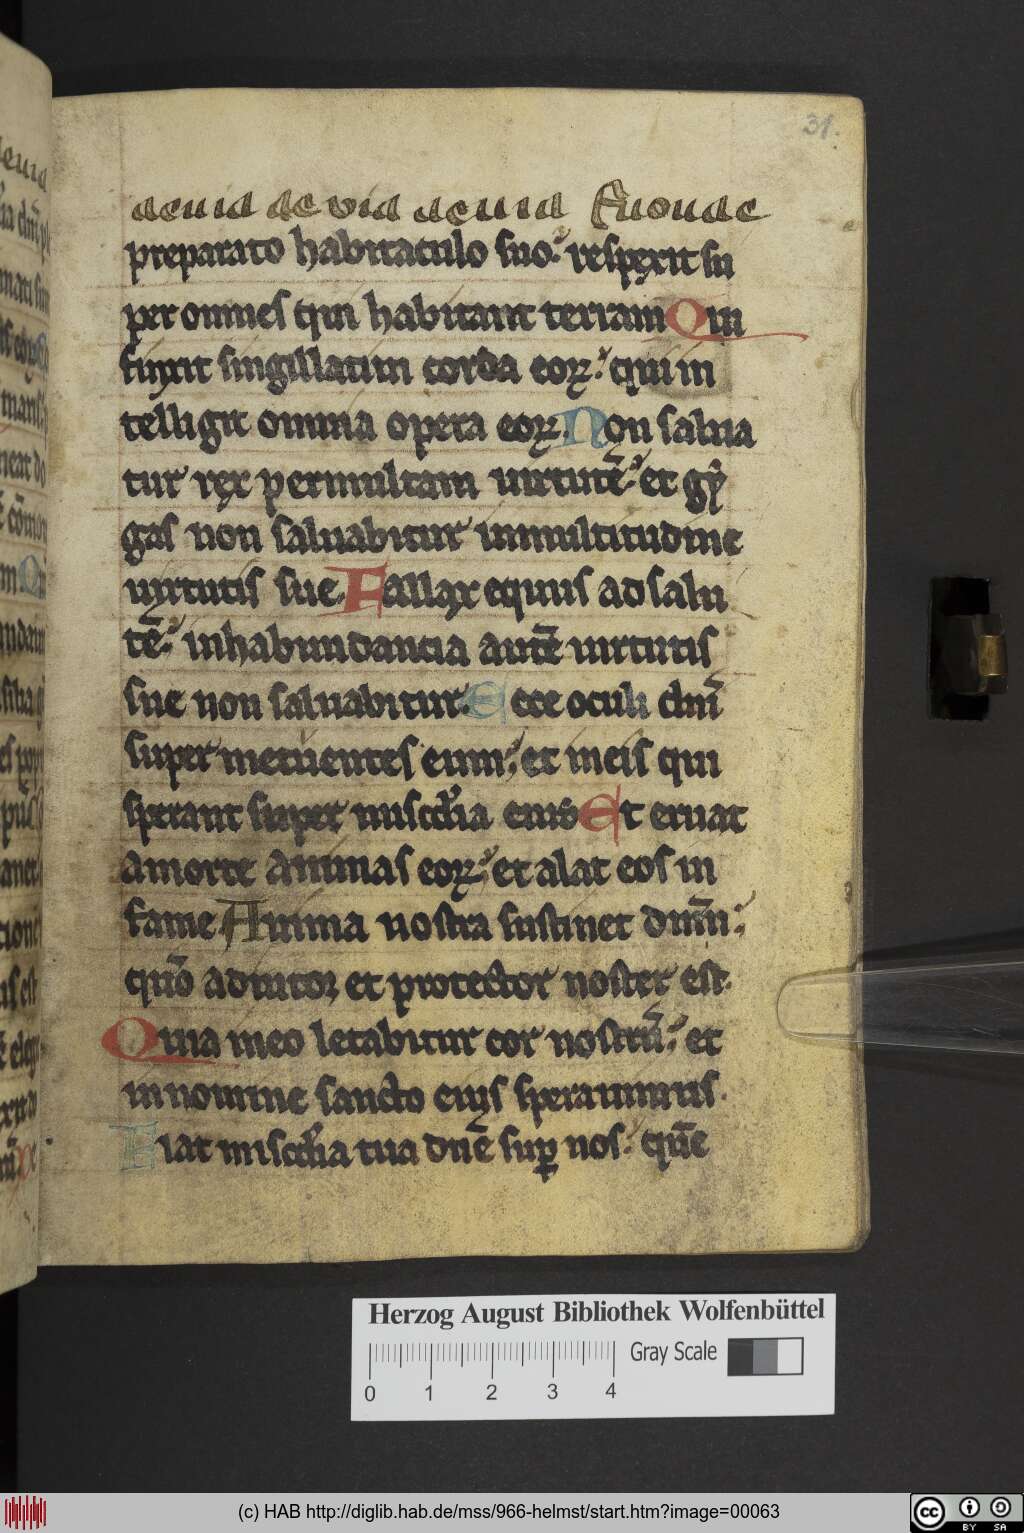 31.
aeuia aeuia aeuia Euouae
preparato habitaculo suo: respexit su
per omnes qui habitant terram Qui
finxit singillatim corda eoꝝ: qui in
telligit omnia opera eoꝝ. Non salua
tur rex permultam uirtutē: et gy
gas non saluabitur inmultitudine
uirtutis sue. Fallax equus ad salu
tē: inhabundancia autē uirtutis
sue non saluabitur. Ecce oculi dn̄i
super metuentes eum: et ineis qui
sperant super misc̄dia eius Et eruat
amorte animas eoꝝ: et alat eos in
fame. Anima nostra sustinet dn̄m:
qm̄ adiutor et protector noster est.
Quia ineo letabitur cor nostrū: et
innomine sancto eius sperauimus.
Fiat misc̄dia tua dn̄e suꝑ nos: quē
Herzog August Bibliothek Wolfenbüttel
Gray Scale
0 1 2 3 4
(c) HAB http://diglib.hab.de/mss/966-helmst/start.htm?image=00063
cc BY SA